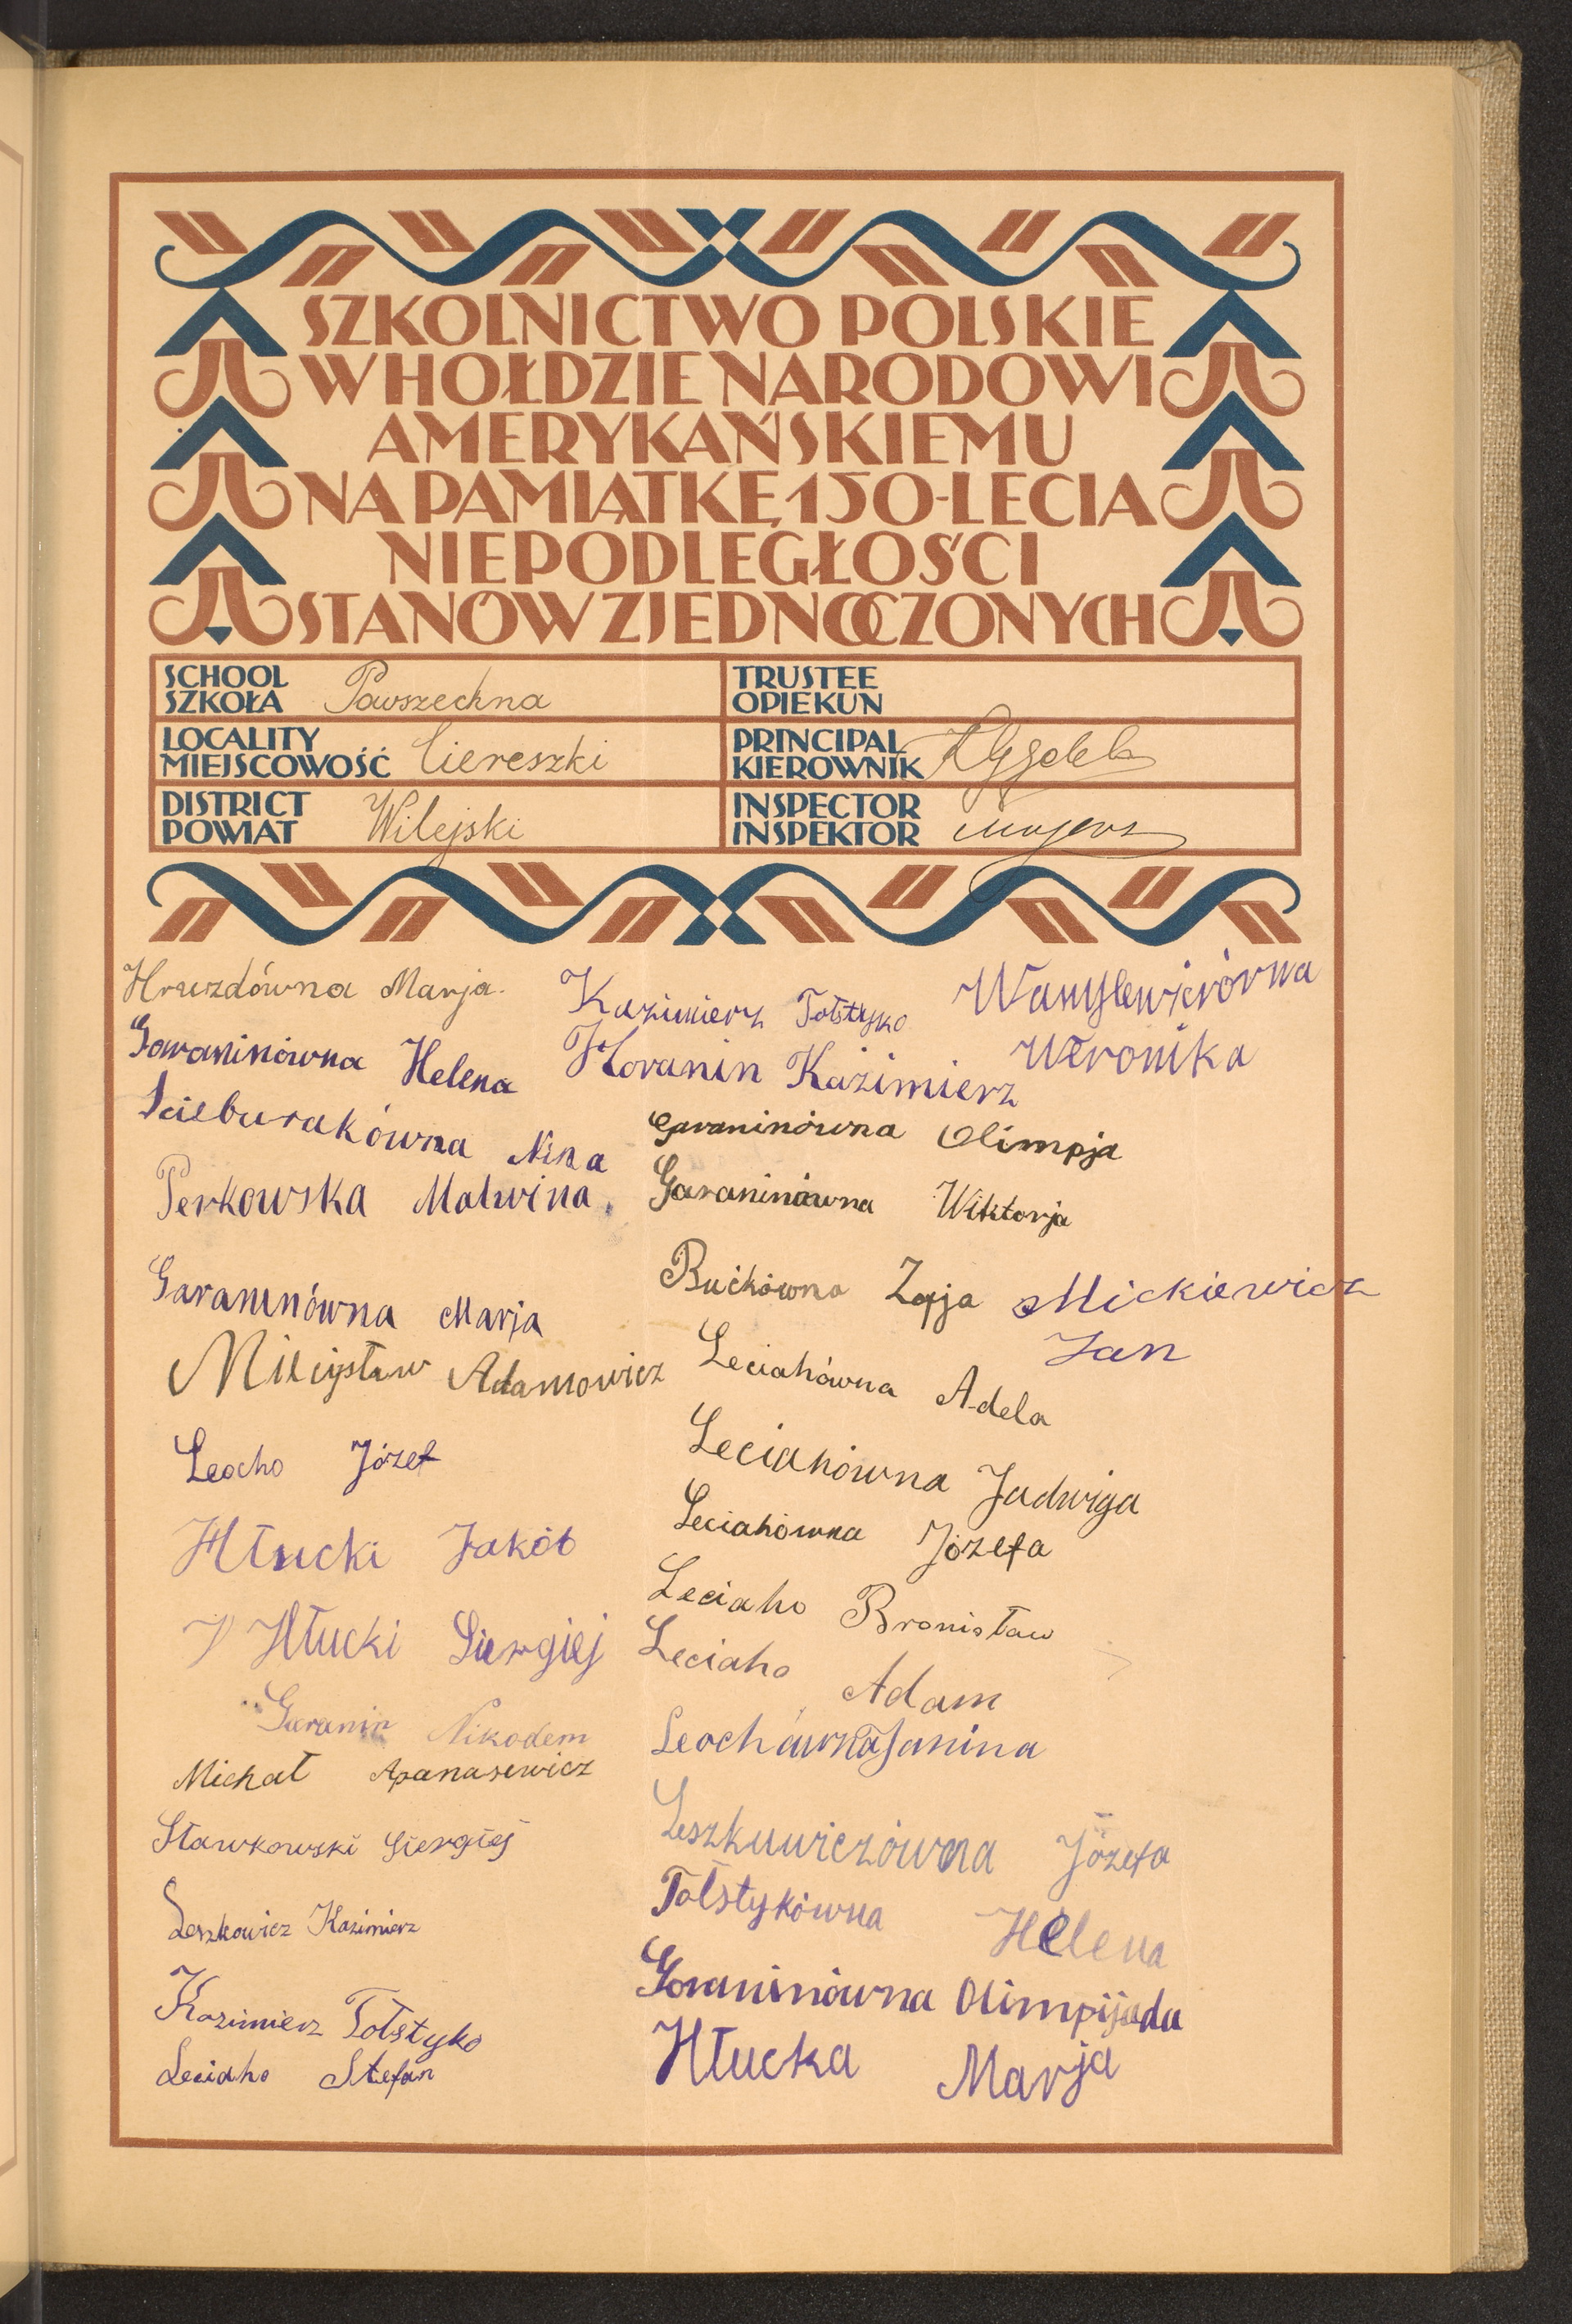 SZKOLNICTWO POLSKIE
W HOŁDZIE NARODOWI
AMERYKAŃSKIEMU
NA PAMIĄTKĘ 150-LECIA
NIEPODLEGŁOŚCI
STANÓW ZJEDNOCZONYCH
SCHOOL
SZKOŁA Powszechna
TRUSTEE
OPIEKUN
LOCALITY
MIEJSCOWOŚĆ Ciereszki
PRINCIPAL
KIEROWNIK
DISTRICT
POWIAT Wilejski
INSPECTOR
INSPEKTOR
Hruzdówna Marja.
Garaninówna Helena
Ścieburakówna Nina
Perkowska Malwina.
Garaninówna Marja
Mieczysław Adamowicz
Leocho Józef
Hłucki Jakób
Hłucki Siergiej
Garanin Nikodem
Michał Apanasewicz
Sławkowski Siergiej
Leszkowicz Kazimierz
Kazimierz Tołstyko
Leciaho Stefan
Kazimierz Tołstyko
Horanin Kazimierz
Garaninówna Olimpja
Garaninówna Wiktorja
Bućkówna Zofja
Leciahówna Adela
Leciahówna Jadwiga
Leciahówna Józefa
Leciaho Bronisław
Leciaho Adam
Leochówna Janina
Leszkuwiczówna Józefa
Tołstykówna Helena
Goraninówna Olimpijada
Hłucka Marja
Wasylewiczówna
Weronika
Mickiewicz
Jan